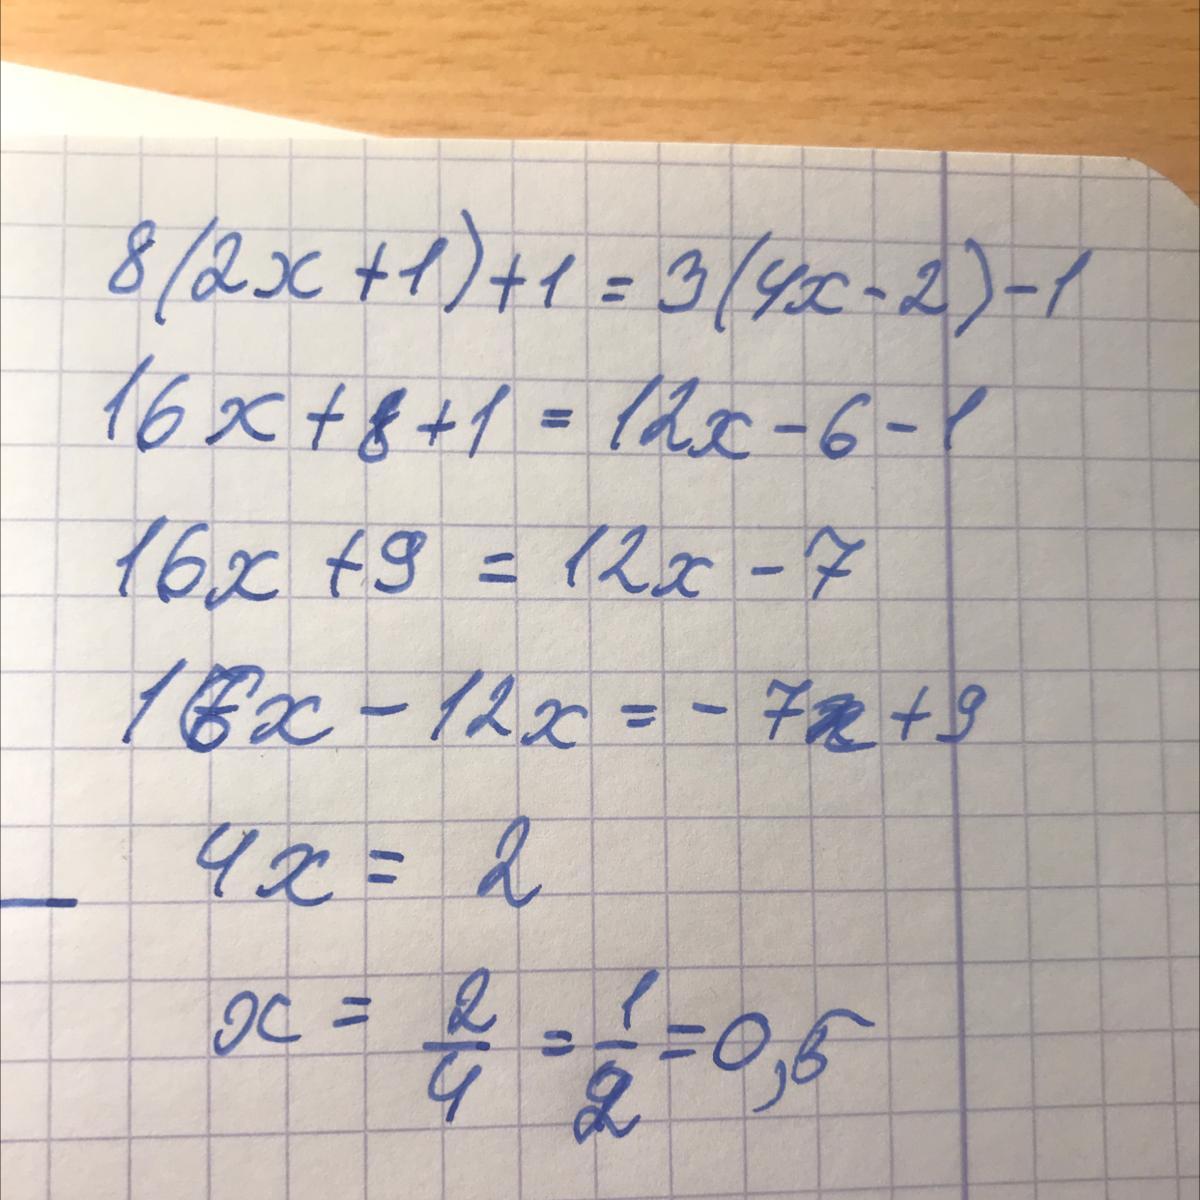 8(2x+1)+1=3(4x-2)-1
16x+8+1=12x-6-1
16x+9=12x-7
16x-12x=-7+9
4x=2
x=2/4=1/2=0,5